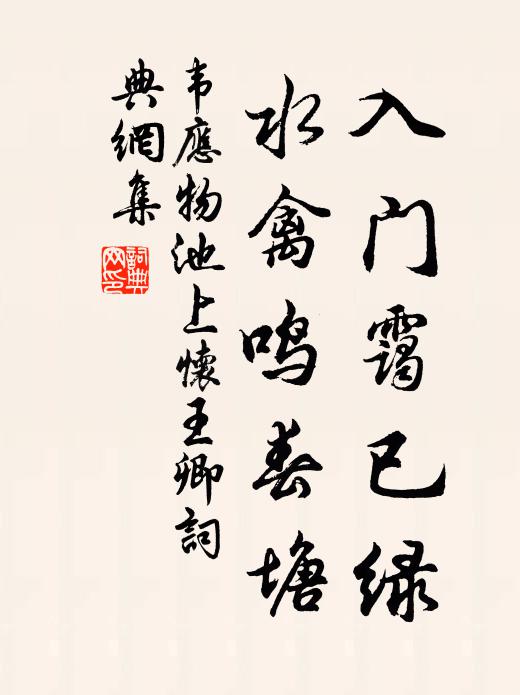 入门霭已绿
水禽鸣春塘
韦應物池上懷王卿詞
典網集
詞典
网印